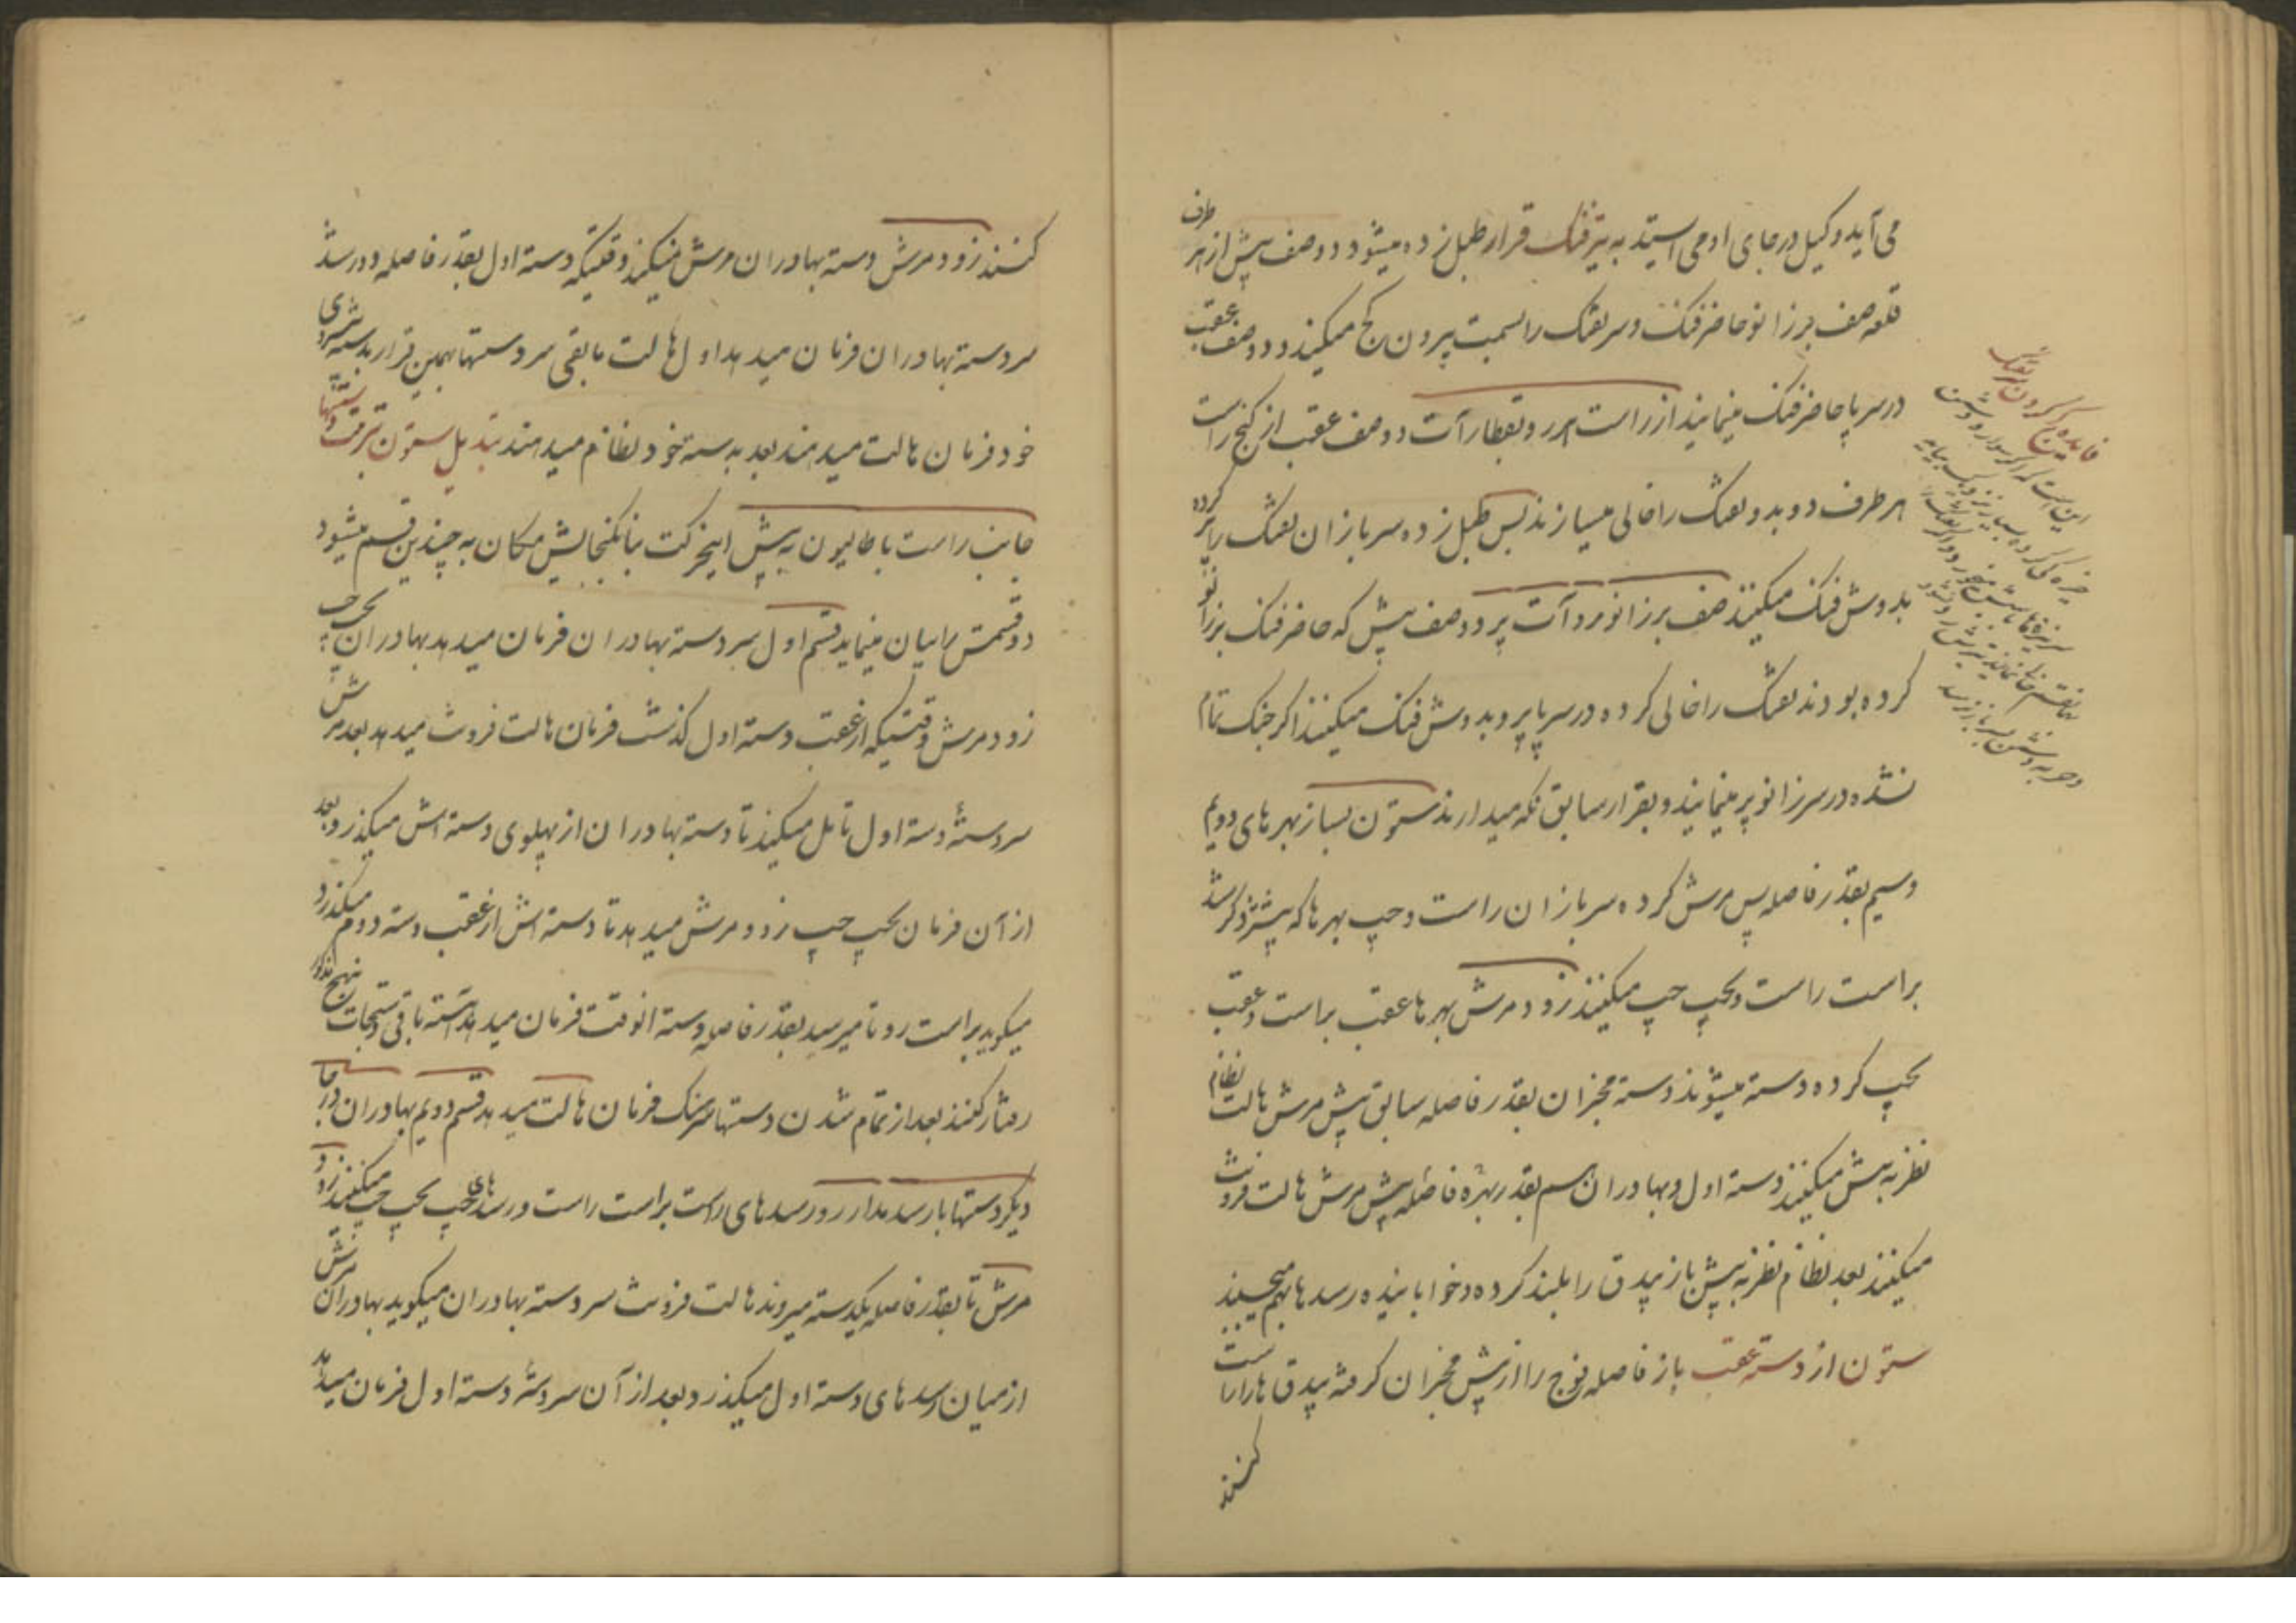 می آید وکیل در جای او می ایستد به تیز فنک قرار طبل زده میشود دو صف پیش از هر طرف
قلعه صف بر زانو حاضر فنک و سر تفنک را بسمت بیرون کج میکنند و دو صف عقب
در سر پا حاضر فنک مینمایند از راست هر رو بقطار آت دو صف عقب از کنج راست
هر طرف دو بدو تفنک را خالی میسازند پس طبل زده سربازان تفنک را پر کرده
بدوش فنک میکنند صف بر زانو مرد آت پر دو صف پیش که حاضر فنک بر زانو
کرده بودند تفنک را خالی کرده در سر پا پر و بدوش فنک میکنند اکر جنک تمام
نشده در سر زانو پر مینمایند و بقرار سابق نکه میدارند ستون بساز بهرهای دویم
وسیم بقدر فاصله پس مرش کرده سربازان راست و چپ بهرها که پیشتر ذکر شد
براست راست و بچپ چپ میکنند زود مرش بهرها عقب براست و عقب
بچپ کرده دسته میشوند دسته مخبران بقدر فاصله سابق پیش مرش هالت نظام
نظر به پیش میکنند دسته اول و بهادران هم بقدر بهره فاصله پیش مرش هالت فرونت
میکنند بعد نظام نظر به پیش باز بیدق را بلند کرده و خوابانیده رسدها بهم میچسبند
ستون از دسته عقب باز فاصله فوج را از پیش مخبران کرفته بیدق ها را راست
کنند
فایده کج کردن تفنک
این است که اگر سوار دشمن
کنند زود مرش دسته بهادران مرش میکنند وقتیکه دسته اول بقدر فاصله دور شد
سردسته بهادران فرمان میدهد اول هالت مابقی سردستها بهمین قرار بدسته سری
خود فرمان هالت میدهند بعد به دسته خود نظام میدهند تبدیل ستون بترقت دستها
جانب راست باطالیون به پیش اینحرکت بنا بکنجایش مکان به چندین قسم میشود
دو قسمتش را بیان مینماید قسم اول سر دسته بهادران فرمان میدهد بهادران بچپ چپ
زود مرش وقتیکه از عقب دسته اول کذشت فرمان هالت فرونت میدهد بعد مرش
سردستهٔ دسته اول تامل میکند تا دسته بهادران از پهلوی دسته اش میکذرد بعد
از آن فرمان بچپ چپ زود مرش میدهد تا دسته اش از عقب دسته دوم میکذرد
میکوید براست رو تا میرسد بقدر فاصله دسته انوقت فرمان میدهد دسته باقی دستجات بنهج مذکور
رفتار کنند بعد از تمام شدن دستها سرهنک فرمان هالت میدهد قسم دویم بهادران درجا
دیکر دستها با رسد مدار رو رسدهای راست براست راست و رسدهای چپ بچپ چپ میکنند زود
مرش تا بقدر فاصله یکدسته میروند هالت فرونت سر دسته بهادران میکوید بهادران مرش
از میان رسدهای دسته اول میکذرد و بعد از آن سردستهٔ دسته اول فرمان میدهد